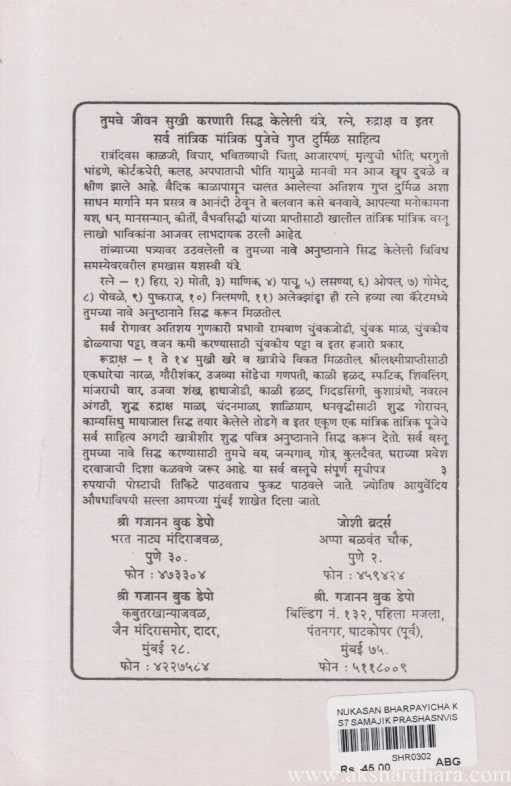 तुमचे जीवन सुखी करणारी सिद्ध केलेली यंत्रे, रत्ने, रुद्राक्ष व इतर
सर्व तांत्रिक मांत्रिक पुजेचे गुप्त दुर्मिळ साहित्य
रात्रंदिवस काळजी, विचार, भवितव्याची चिंता, आजारपणं, मृत्युची भीति, घरगुती
भांडणे, कोर्टकचेरी, कलह, अपघाताची भीति यामुळे मानवी मन आज खूप दुबळे व
क्षीण झाले आहे. वैदिक काळापासून चालत आलेल्या अतिशय गुप्त दुर्मिळ अशा
साधन मार्गाने मन प्रसन्न व आनंदी ठेवून ते बलवान कसे बनवावे, आपल्या मनोकामना
यश, धन, मानसन्मान, कीर्ती, वैभवसिद्धी यांच्या प्राप्तीसाठी खालील तांत्रिक मांत्रिक वस्तू
लाखो भाविकांना आजवर लाभदायक ठरली आहेत.
तांब्याच्या पत्र्यावर उठवलेली व तुमच्या नावे अनुष्ठानाने सिद्ध केलेली विविध
समस्येवरवरील हमखास यशस्वी यंत्रे.
रत्ने – १) हिरा, २) मोती, ३) माणिक, ४) पाचू, ५) लसण्या, ६) ओपल, ७) गोमेद,
८) पोवळे, ९) पुष्कराज, १०) निलमणी, ११) अलेक्झांड्रा ही रत्ने हव्या त्या कॅरेटमध्ये
तुमच्या नावे अनुष्ठानाने सिद्ध करून मिळतील.
सर्व रोगावर अतिशय गुणकारी प्रभावी रामबाण चुंबकजोडी, चुंबक माळ, चुंबकीय
डोळ्याचा पट्टा, वजन कमी करण्यासाठी चुंबकीय पट्टा व इतर हजारो प्रकार.
रूद्राक्ष – १ ते १४ मुखी खरे व खात्रीचे विकत मिळतील. श्रीलक्ष्मीप्राप्तीसाठी
एकधारेचा नारळ, गौरीशंकर, उजव्या सोंडेचा गणपती, काळी हळद, स्फटिक, शिवलिंग,
मांजराची वार, उजवा शंख, हाथाजोडी, काळी हळद, गिदडसिंगी, कुशाग्रंथी, नवरत्न
अंगठी, शुद्ध रुद्राक्ष माळा, चंदनमाळा, शाळिग्राम, धनवृद्धीसाठी शुद्ध गोराचन,
काम्यसिंधु मायाजाल सिद्ध तयार केलेले तोडगे व इतर एकूण एक मांत्रिक तांत्रिक पूजेचे
सर्व साहित्य अगदी खात्रीशीर शुद्ध पवित्र अनुष्ठानाने सिद्ध करून देतो. सर्व वस्तू
तुमच्या नावे सिद्ध करण्यासाठी तुमचे वय, जन्मगाव, गोत्र, कुलदैवत, घराच्या प्रवेश
दरवाजाची दिशा कळवणे जरूर आहे. या सर्व वस्तूचे संपूर्ण सूचीपत्र ३
रुपयाची पोस्टाची तिकिटे पाठवताच फुकट पाठवले जाते. ज्योतिष आयुर्वेदिय
औषधाविषयी सल्ला आमच्या मुंबई शाखेत दिला जातो.
श्री गजानन बुक डेपो
भरत नाट्य मंदिराजवळ,
पुणे ३०.
फोन : ४७३३०४
जोशी ब्रदर्स
अप्पा बळवंत चौक,
पुणे २.
फोन : ४५९४२४
श्री गजानन बुक डेपो
कबुतरखान्याजवळ,
जैन मंदिरासमोर, दादर,
मुंबई २८.
फोन : ४२२७५८४
श्री. गजानन बुक डेपो
बिल्डिंग नं. १३२, पहिला मजला,
पंतनगर, घाटकोपर (पूर्व),
मुंबई ७५.
फोन : ५११८००९
NUKASAN BHARPAYICHA K
S7 SAMAJIK PRASHASNVIS
SHR0302
Rs. 45.00 ABG
www.akshardhara.com